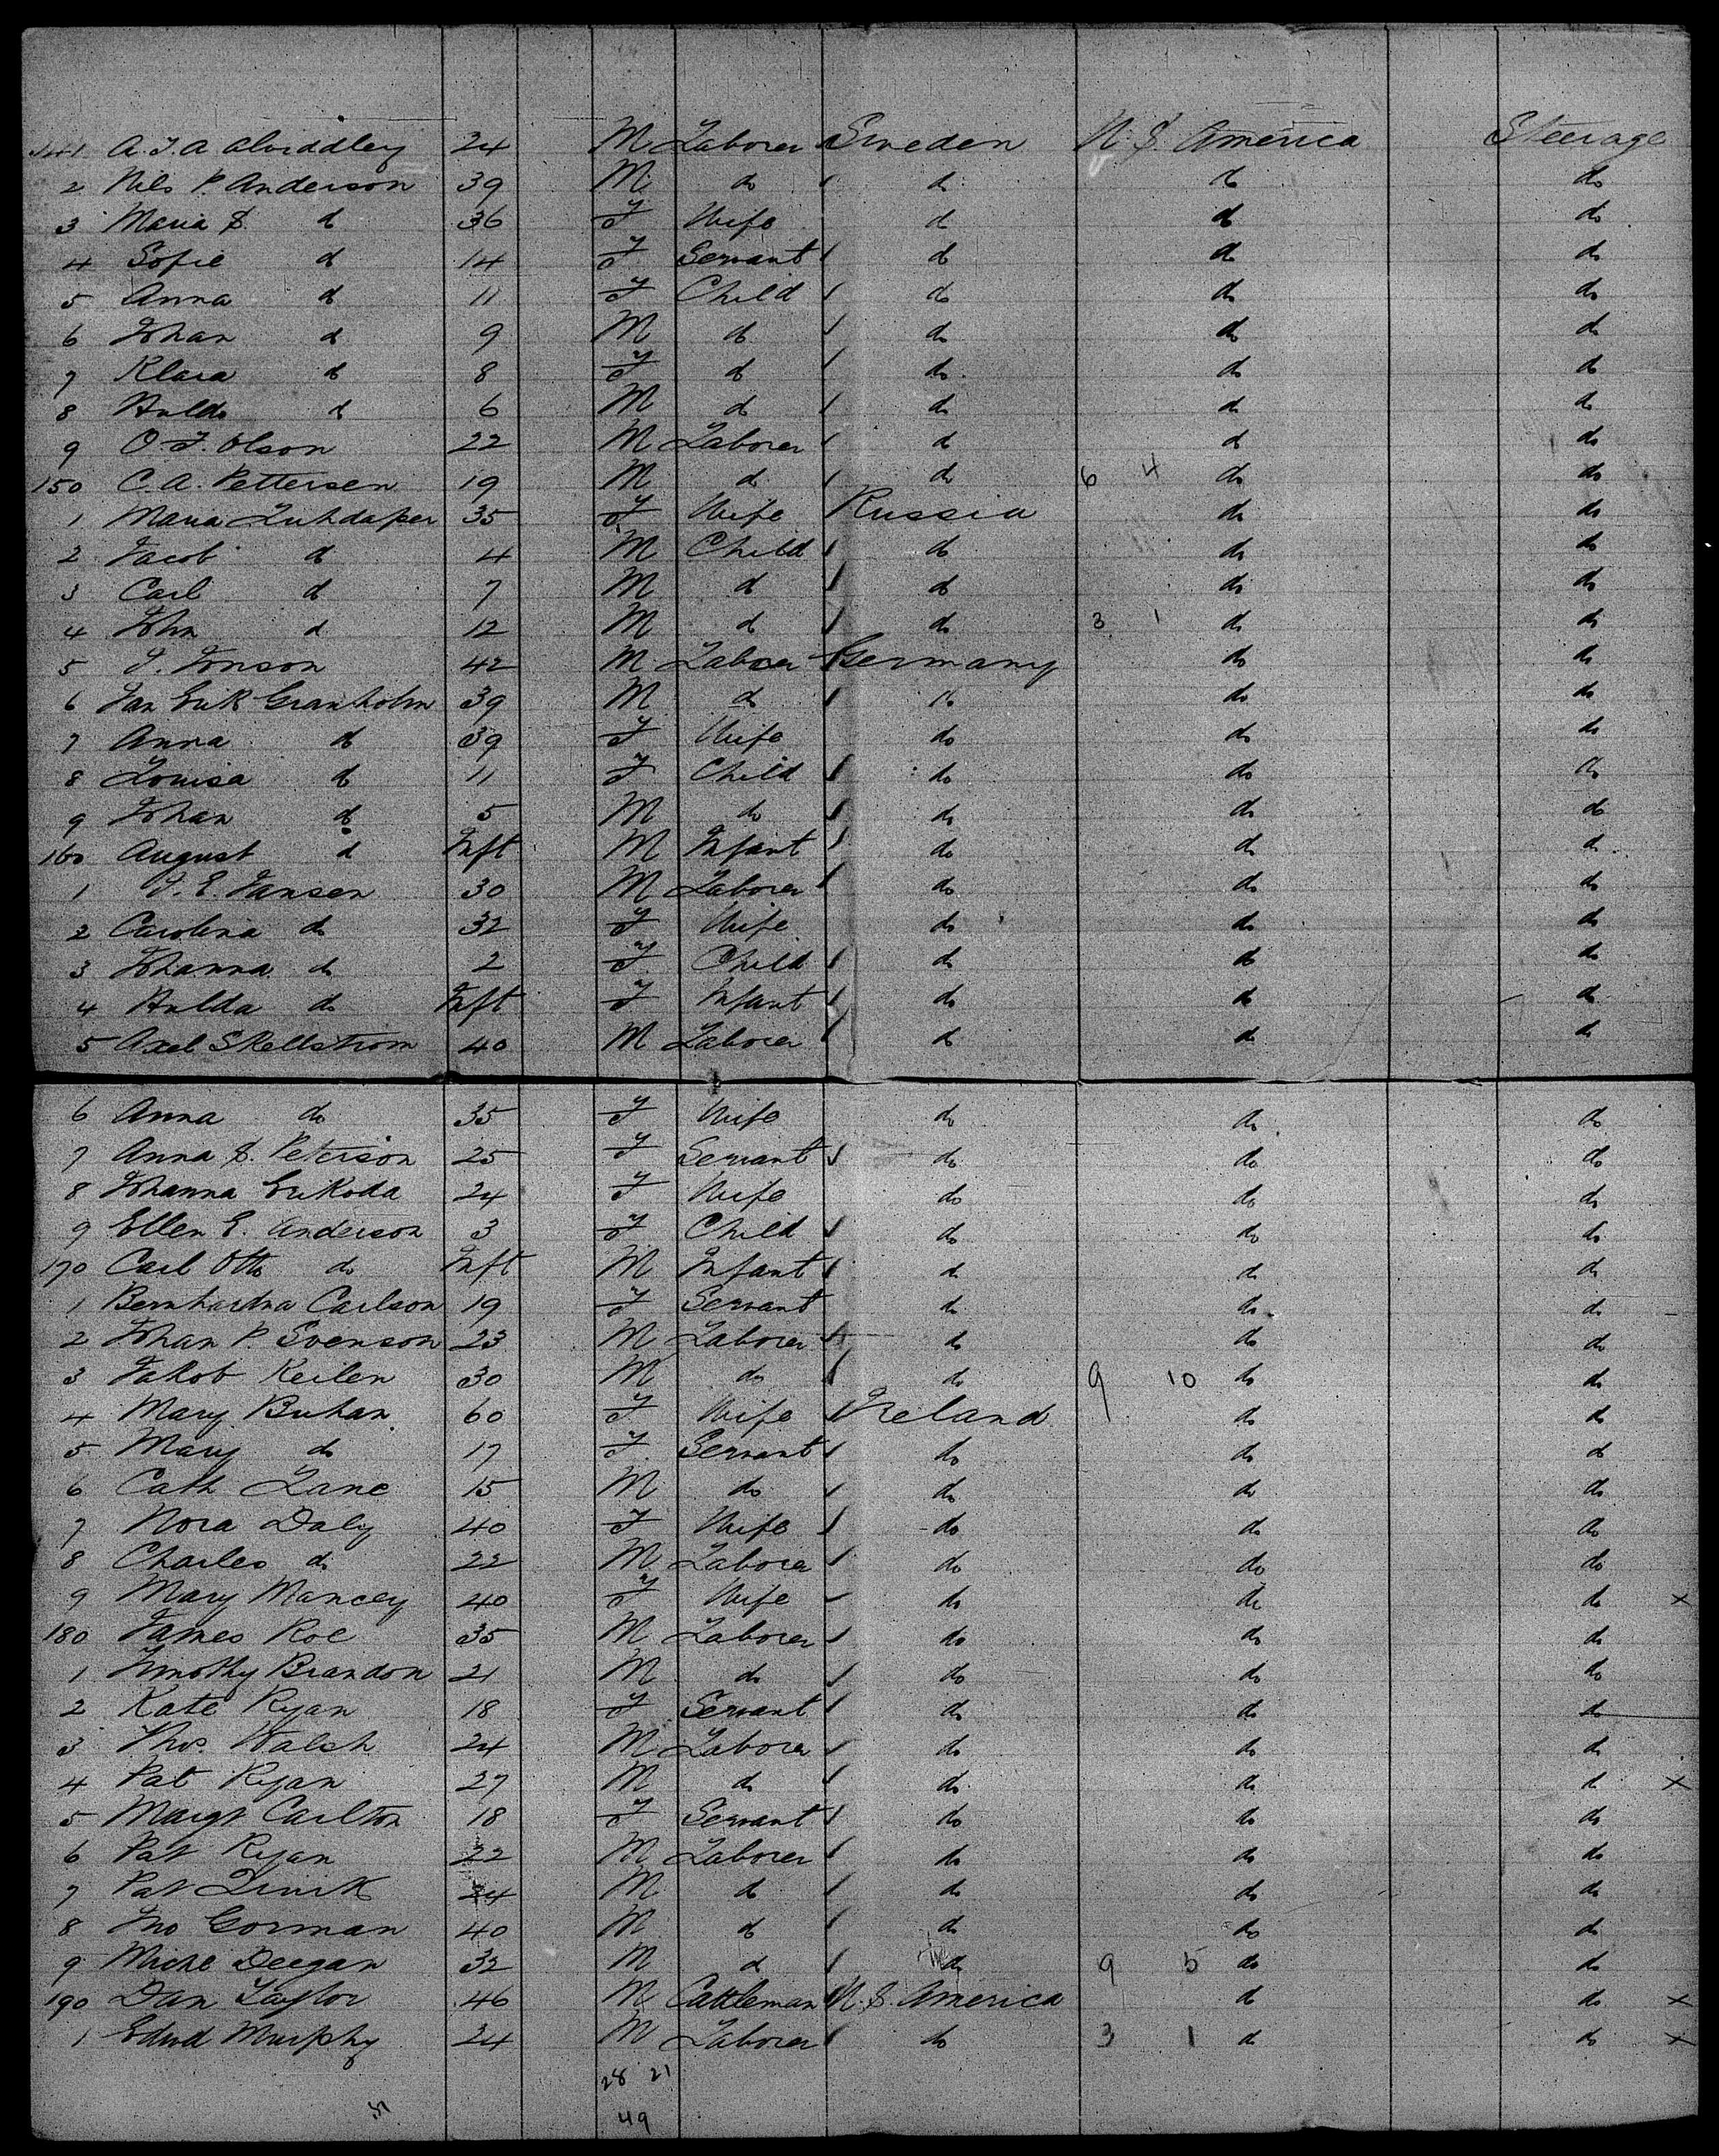 141 A.J.A 24 M Laborer Sweden U.S. America Steerage
2 Nils P. Anderson 39 M do do do do
3 Maria S. do 36 F Wife do do do
4 Sofie do 14 F Servant do do do
5 Anna do 11 F Child do do do
6 Johan do 9 M do do do do
7 Klara do 8 F do do do do
8 Hulda do 6 M do do do do
9 O.F. Olson 22 M Laborer do do do
150 C.A. Pettersen 19 M do do 6 4 do do
1 Maria 35 F Wife Russia do do
2 Jacob do 4 M Child do do do
3 Carl do 7 M do do do do
4 John do 12 M do do 3 1 do do
5 J. Jonson 42 M Laborer Germany do do
6 Jan Erik Granholm 39 M do do do
7 Anna do 39 F Wife do do do
8 Louisa do 11 F Child do do do
9 Johan do 5 M do do do do
160 August do Inft M Infant do do do
1 J.E. Jansen 30 M Laborer do do do
2 Carolina do 32 F Wife do do do
3 Johanna do 2 F Child do do do
4 Hulda do Inft F Infant do do do
5 Axel Skellstrom 40 M Laborer do do do
6 Anna do 35 F Wife do do do
7 Anna S. Peterson 25 F Servant do do do
8 Johanna 24 F Wife do do do
9 Ellen E. Anderson 3 F Child do do do
170 Carl Otto do Inft M Infant do do do
1 Bernhardina Carlson 19 F Servant do do do
2 Johan P. Svenson 23 M Laborer do do do
3 Jakob Keilen 30 M do do 9 10 do do
4 Mary Buhan 60 F Wife Ireland do do
5 Mary do 17 F Servant do do do
6 Cath Lane 15 M do do do do
7 Nora Daly 40 F Wife do do do
8 Charles do 22 M Laborer do do do
9 Mary Mancey 40 F Wife do do do x
180 James Roe 35 M Laborer do do do
1 Timothy Brandon 21 M do do do do
2 Kate Ryan 18 F Servant do do do
3 Thos. Walsh 24 M Laborer do do do
4 Pat Ryan 27 M do do do do x
5 Margt Carlton 18 F Servant do do do
6 Pat Ryan 22 M Laborer do do do
7 Pat 24 M do do do do
8 Jno Gorman 40 M do do do do
9 Michl Deegan 32 M do do 9 5 do do
190 Dan Taylor 46 M Cattleman U.S. America do do x
1 Edwd Murphy 24 M Laborer do 3 1 do do x
28 21
49